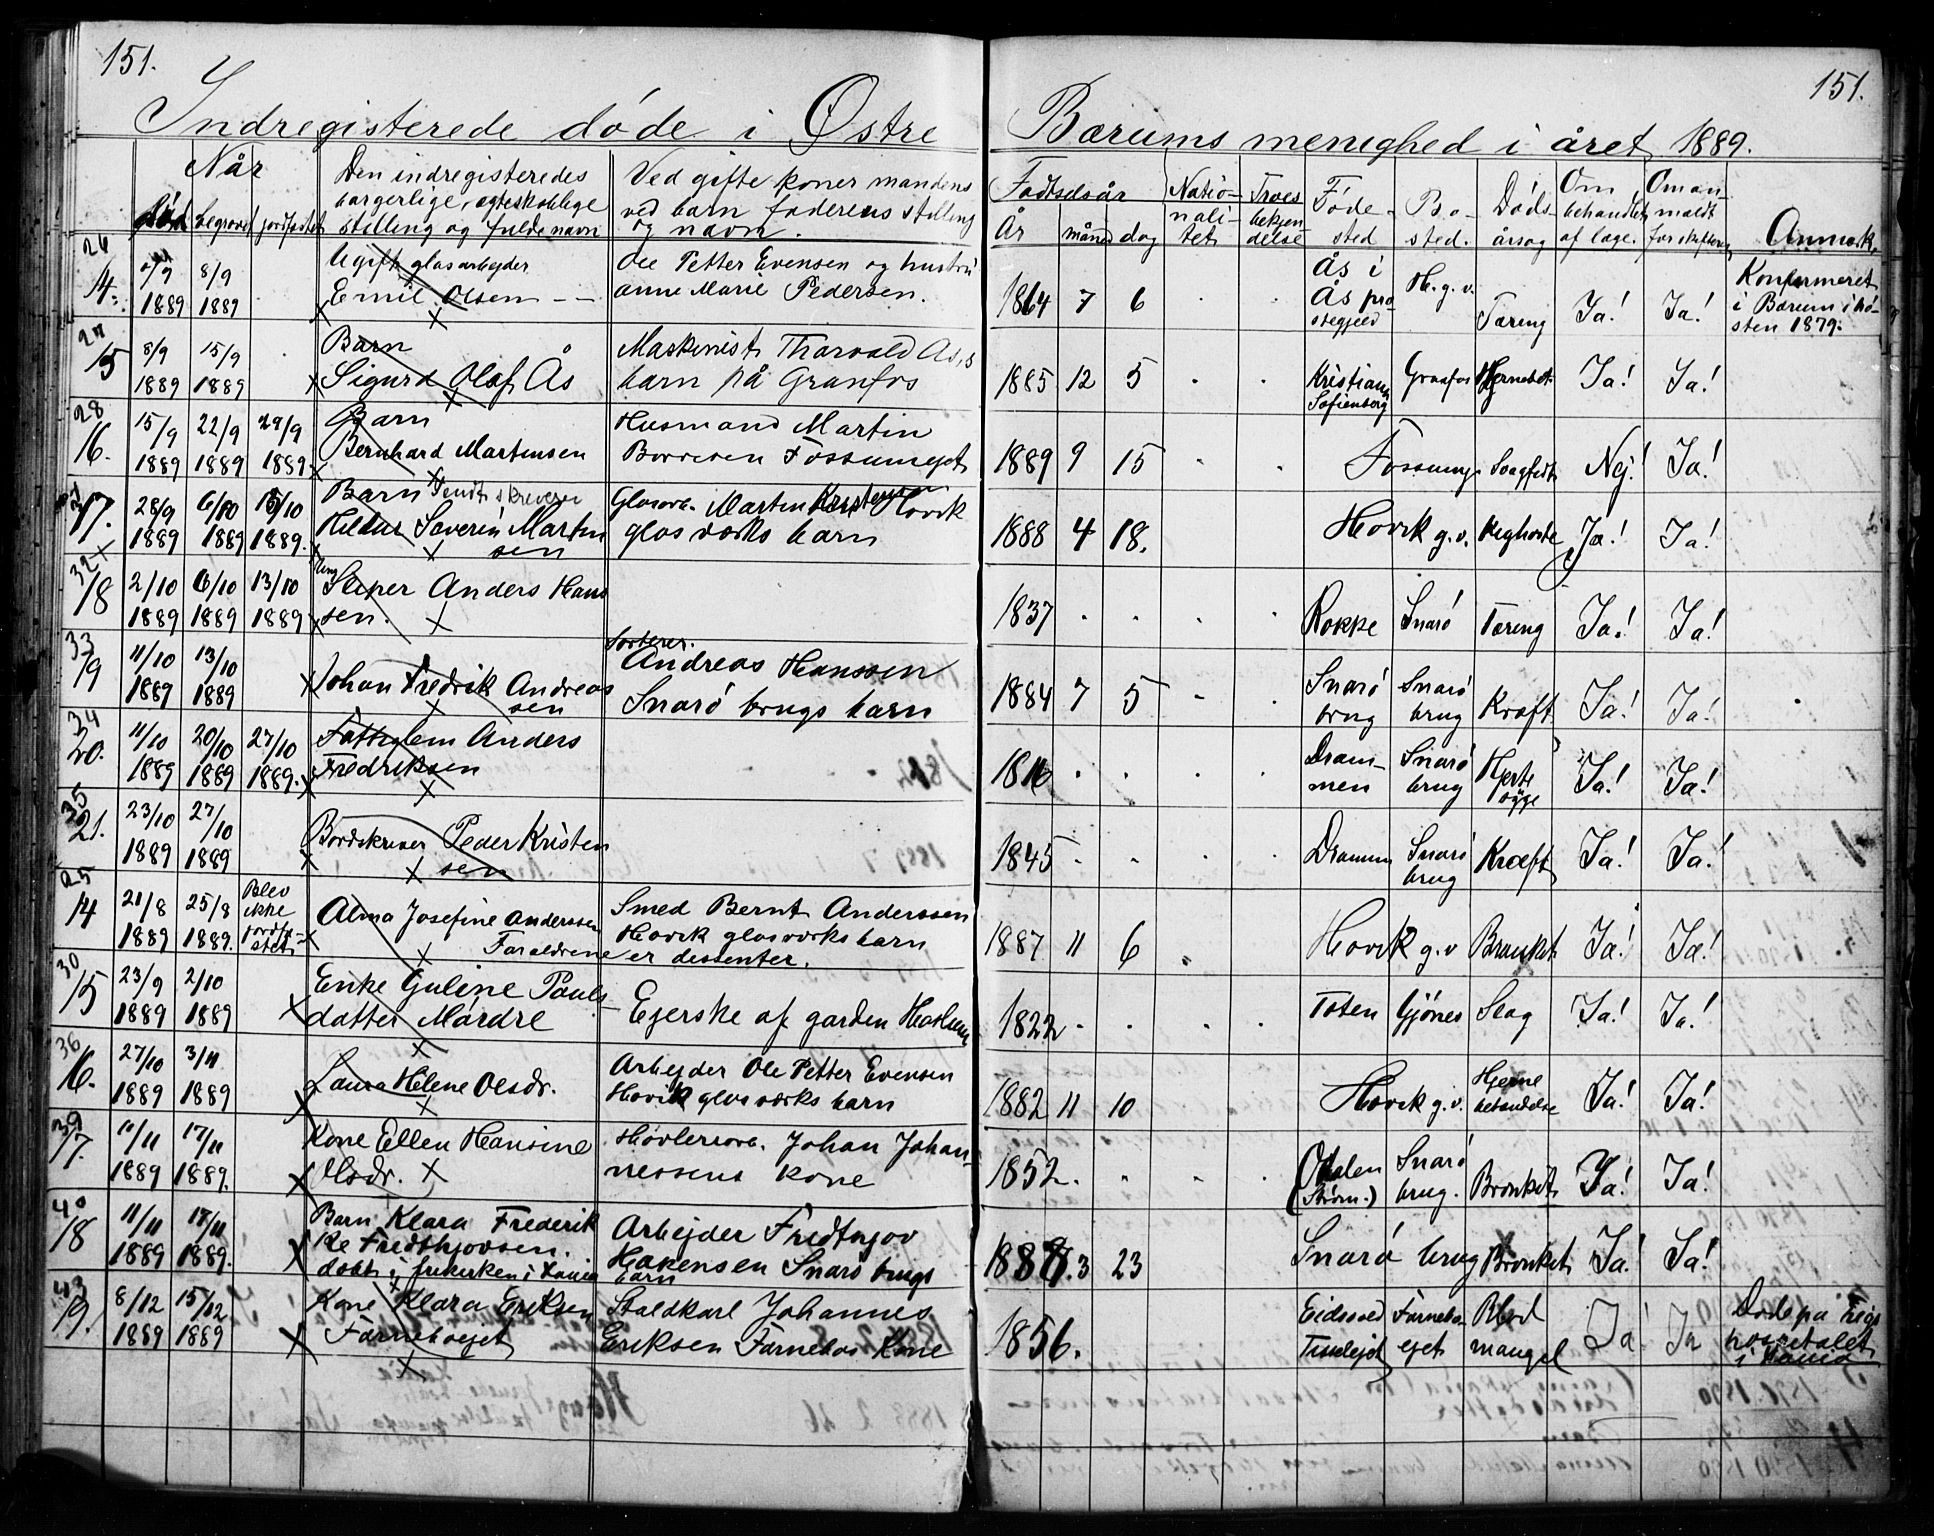 151.
151.
Indregisterede døde i Østre Bærums menighed i året 1889.
Når
død begravet jordfæstet
Den indregisteredes
borgerlige, ægteskablige
stilling og fulde navn
Ved gifte koner mandens
ved barn faderens stilling
og navn.
Fødselsår
År måned dag
Natio-
nali-
tet
Troes
bekjen
delse
Føde-
sted
Bo-
sted.
Døds
årsag
Om
behandlet
af læge.
Om an-
mældt
for skifteret
Anmærk.
26
14. 8/9
1889 1889
Ugift glasarbejder
Emil Olsen
Ole Petter Evensen og hustru
Anne Marie Pedersen.
1864 7 6
Ås i
Ås præ
stegjeld
H. g. v.
Tæring
Ja! Ja!
Konfirmeret
i Bærum i hø-
sten 1879.
27
15 8/9 15/9
1889 1889
Barn
Sigurd Olaf Ås
Maskinist Tharvald Ås,s
barn på Granfos
1885 12 5
Kristiania
Sofienberg
Granfos
Ja! Ja!
28
16. 15/9 22/9 29/9
1889 1889 1889
Barn
Bernhard Martinsen
Husmand Martin
Borresen Fossumejet
1889 9 15
Nej! Ja!
17. 28/9 6/10 13/10
1889 1889 1889.
Barn
Hildur Saverin Martin
sen
Glasarb. Martin Hovik
glasværks barn
1888 4 18.
Hovik g. v. Kighoste Ja! Ja!
32
18 2/10 6/10 13/10
1889 1889 1889
Anders Hans
sen.
1837
Rokke Snarø Tæring Ja! Ja!
33
19 11/10 13/10
1889 1889
Johan Fredrik Andreas
sen
Sorterer.
Andreas Hanssen
Snarø brugs barn
1884 7 5
Snarø
brug
Snarø
brug
Kræft Ja! Ja!
34
20. 11/10 20/10 27/10
1889 1889 1889.
Fattiglem Anders
Fredriksen
Dram-
men
Snarø
brug
Ja! Ja!
35
21. 23/10 27/10
1889 1889
Bordskriver Peder Kristen
sen
1845
Drammen
Snarø
brug
Kræft Ja! Ja!
25
14 21/8 25/8
1889 1889.
Blev
ikke
jordfæ-
stet
Alma Josefine Anderssen
Smed Bernt Anderssen
Hovik glasværks barn
Foraldrene er dissenter.
1887 11 6
Hovik g. v Bronkit Ja! Ja!
30
15 23/9 2/10
1889 1889
Enke Guline Pauls
datter Mårdre
Ejerske af garden Haslum
1822.
Toten Gjønes Slag Ja! Ja!
36
16. 27/10 3/11
1889 1889
Laura Helene Olsdr.
Arbejder Ole Petter Evensen
Hovik glasværks barn
1882 11 10
Hovik g. v.
Hjerne
betændelse
Ja! Ja!
39
17. 11/11 17/11
1889 1889.
Kone Ellen Hansine
Olsdr.
Høvleriarb. Johan Johan-
nessens kone
1852.
Odalen
(Strøm.)
Snarø
brug.
Bronkit Ja! Ja!
40
18 11/11 17/11
1889 1889.
Barn Klara Frederik
ke Fredthjovsen.
Arbejder Fredtnjov
Hakensen Snarø brugs
barn
3 23
Snarø brug Bronkit Ja! Ja!
43
19. 8/12 15/12
1889 1889
Kone Klara Eriksen
Fårneboejet
Staldkarl Johannes
Eriksen Fårnebos Kone
1856.
Eidsvold
Fårnebo-
ejet
Blod
mangel
Ja! Ja
Døde på Rigs
hospitalet